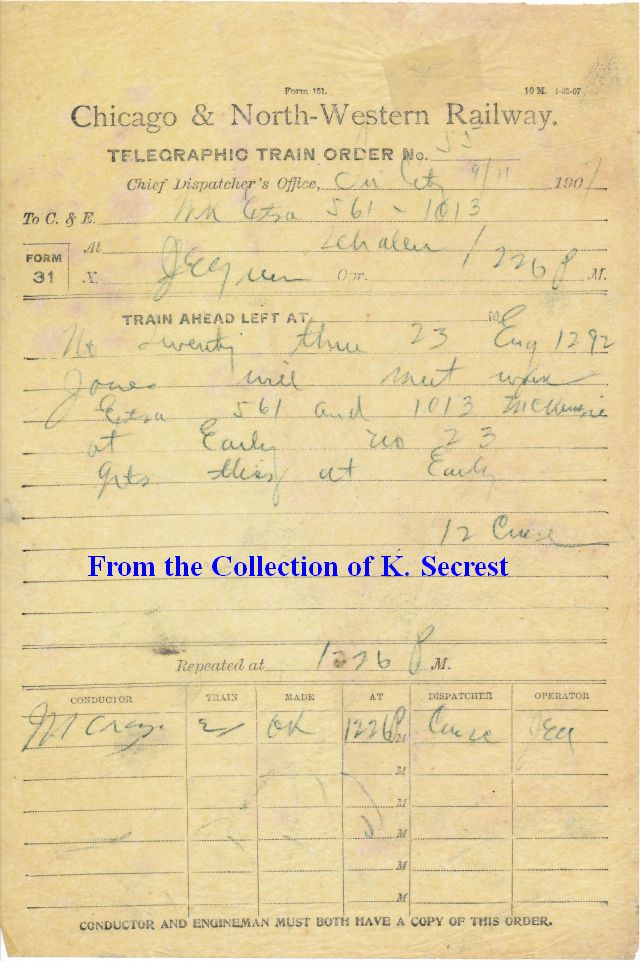 Form 151. 10 M. 1-25-07
Chicago & North-Western Railway.
TELEGRAPHIC TRAIN ORDER No. 55
Chief Dispatcher's Office, 9/11 1907
To C. & E. Wk Extra 561 - 1013
FORM 31
At
X. Opr. 1226 P M.
TRAIN AHEAD LEFT AT M
No twenty three 23 Eng 1292
Jones will meet work
Extra 561 and 1013
at Early no 23
gets this at Early
12
From the Collection of K. Secrest
Repeated at 1226 P M.
CONDUCTOR TRAIN MADE AT DISPATCHER OPERATOR
OK 1226 P M
M
M
M
M
M
CONDUCTOR AND ENGINEMAN MUST BOTH HAVE A COPY OF THIS ORDER.